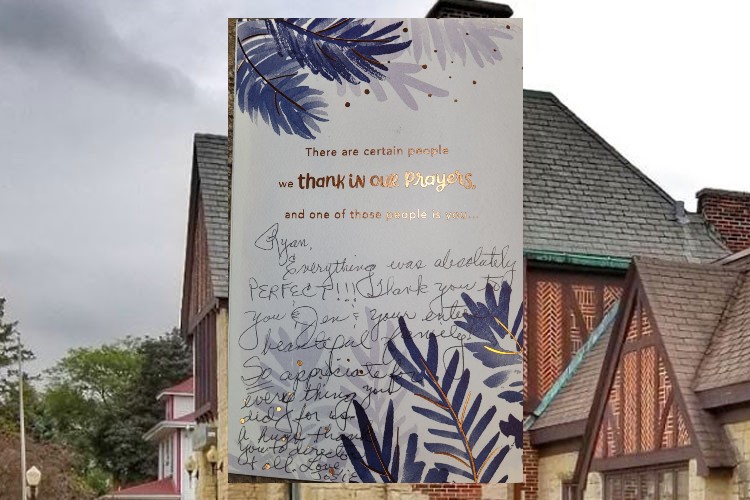 There are certain people
we thank in our Prayers,
and one of those people is you...
Ryan,
Everything was absolutely
PERFECT!!! Thank you to
you & Jen & your entire
beautiful family.
So appreciate
everything you
did for us
a huge thank
you to
it all. Love,
Josie